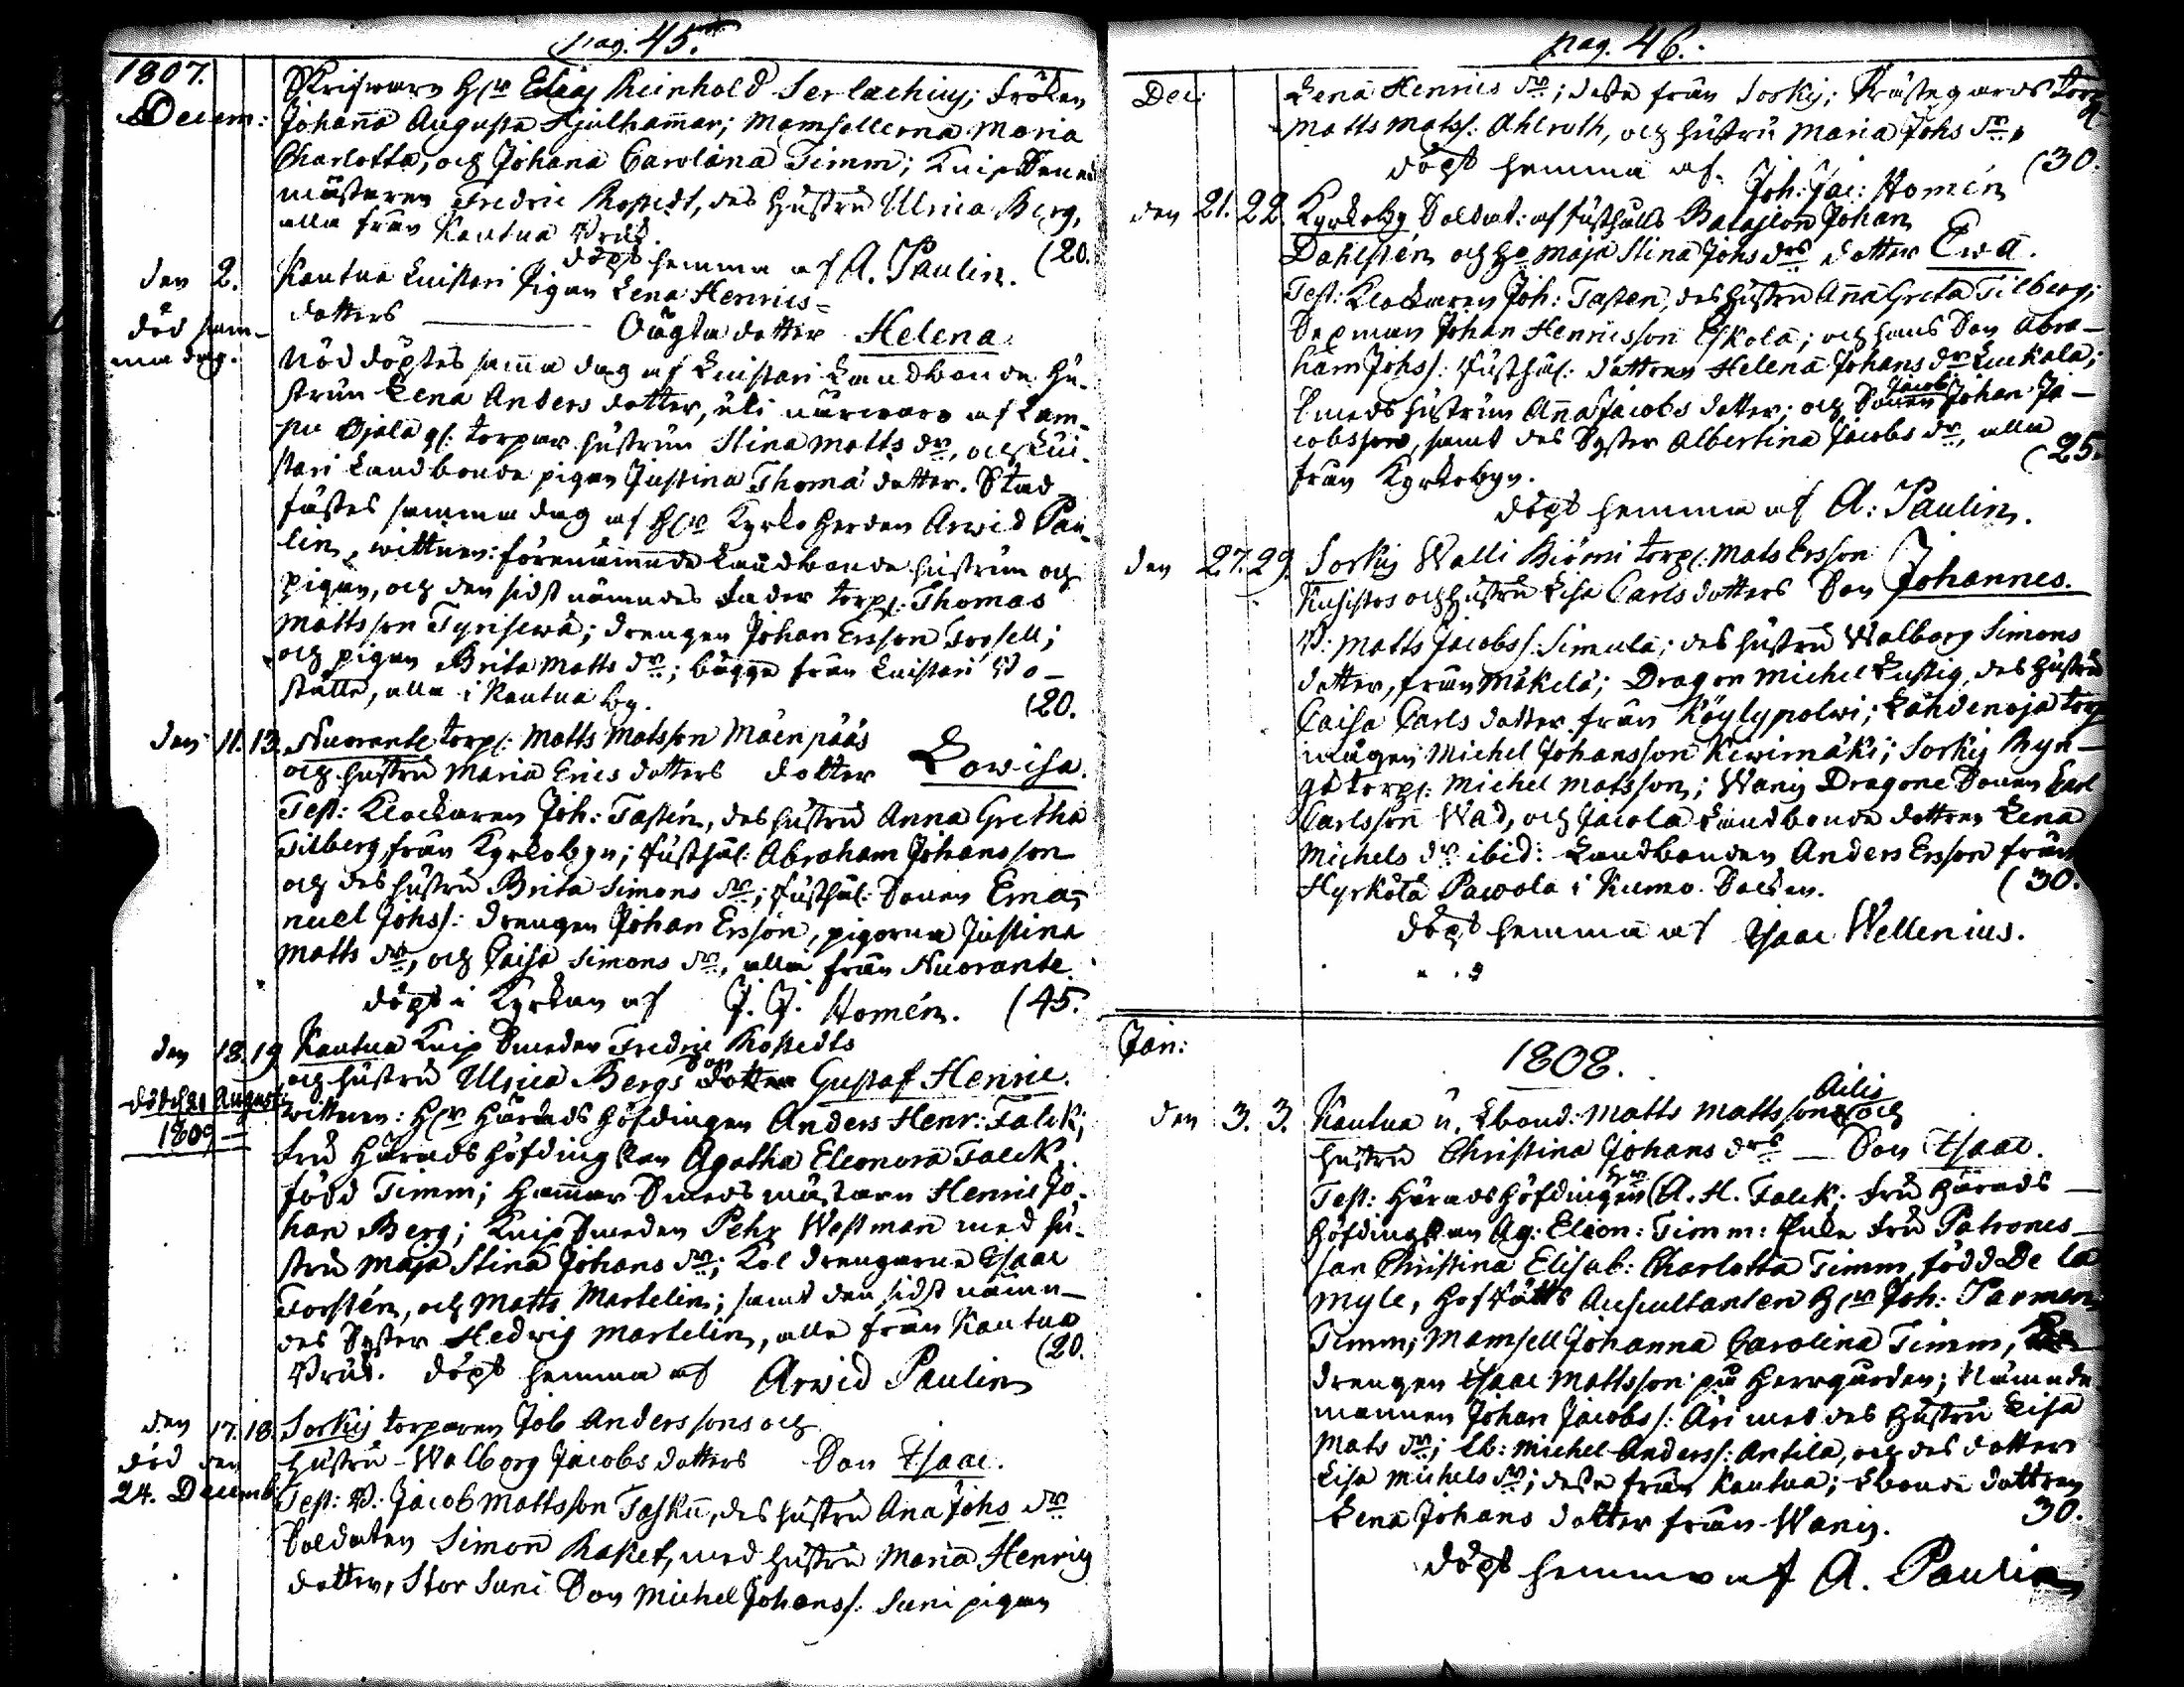 pag. 45.
1807.
Decem:
Skrifwarn H:r Elias Reinhold Serlachius; Fröken
Johanna Augusta Hjulhamar; Mamsellerna Maria
Charlotta, och Johana Carolina Timm; Knip Smeds
mästaren Fredric Rostedt, des Hustru Ulrica Berg,
alla från Kautua Bruk. (20.
döpt hemma af A. Paulin.
den 2. Kautua Luistari Pigan Lena Henrics=
död sam-
ma dag.
dotters Oägta dotter Helena
Nöd döptes sama dag af Luistari Landbonde Hu-
strun Lena Anders dotter, uti närwaro af Lam-
pu Ojala torpar hustrun Stina Matts dr, och Lui-
stari Landbonde pigan Justina Thomä dotter. Stad
fästes samma dag af H:r Kyrko Herden Arwid Pau-
lin, wittnen: förenämnde Landbonde hustrun och
pigan, och den sidst nämndes Fader torp: Thomas
Mattsson Tyrisewä; drengen Johan Ersson Forsell;
och pigan Brita Matts dr; bägge från Luistari Bo-
ställe, alla i Kautua by. (20.
den 11. 13. Nuorante torp: Matts Matsson Mäenpääs
och hustru Maria Erics dotters dotter Lowisa.
Test: Klockaren Joh: Tastén, des hustru Anna Gretha
Tilberg, från Kyrkobyn; Rusthål: Abraham Johansson
och des hustru Brita Simons dr; Rusthål: Sonen Ema-
nuel Johss: drengen Johan Ersson, pigorna Justina
Matts dr, och Caisa Simons dr, alla från Nuorante.
döpt i Kyrkan af J. J. Homén. (45.
den 18. 19. Kautua Knip Smeden Fredric Rostedts
och hustru Ulrica Bergs Son Gustaf Henric.
död d. 21 August:
1809
wittnen: H:r Härads Höfdingen Anders Henr: Falck;
Fru Härads Höfdingskan Agatha Eleonora Falck,
född Timm; Hammar Smeds mästarn Henric Jo-
han Berg; Knip Smeden Pehr Westman med hu-
stru Maja Stina Johans dr; Kol drengarne Isaac
Forstén, och Matts Martelin; samt den sidst nämn-
des Syster Hedwig Martelin, alla från Kautua
Bruk. döpt hemma af Arwid Paulin (20.
den 17. 18. Sorkis torparen Job Anderssons och
död den
24. Decemb:
hustru Walborg Jacobs dotters Son Isaac.
Test: B: Jacob Mattsson Tasku, des hustru Ana Johs dr
Soldaten Simon Raket, med hustru Maria Henrics
dotter, Stor Suni Son Michel Johanss: Suni pigan
pag. 46.
Dec:
Lena Henrics dr; desse från Sorkis; Prästegårds torp
Matts Matss: Ahlroth, och hustru Maria Johs dr,
döpt hemma af Joh: Jac: Homén (30.
den 21. 22. Kyrkoby Soldat: af Rusthålls Bataljon Johan
Dahlstén och H:o Maja Stina Johs drs dotter Ewa.
Test: Klockaren Joh: Tasten, des hustru Anna Greta Tilberg;
Sexman Johan Henricsson Eskola; och hans Son Abra-
ham Johss: Rusthål: dottren Helena Johans dr Luckala;
Smeds hustrun Anna Jacobs dotter; och Sonen Jacob Johan Ja-
cobsson, samt des Syster Albertina Jacobs dr, alla
från Kyrkobyn. (25.
döpt hemma af A: Paulin.
den 27. 29. Sorkis Walli Biörni torp: Mats Ersson
Kusistos och hustru Lisa Carls dotters Son Johannes.
B: Matts Jacobss: Simula; des hustru Walborg Simons
dotter, från Mäkelä; Dragon Michel Lustig, des hustru
Caisa Carls dotter från Köylypolwi; Lähdenoja torp
mågen Michel Johansson Kiwimäki; Sorkis Ryn-
gö torp: Michel Matsson; Wanis Dragone Sonen Carl
Carlsson Wad, och Jacola Landbonde dottren Lena
Michels dr ibid: Landbonden Anders Ersson från
Hyrkölä Pawola i Kumo Socken. (30.
döpt hemma af Isaac Wellenius.
Jan:
1808.
den 3. 3. Kautua Lbond: Matts Mattssons Ailis och
hustru Christina Johans drs Son Isaac.
Test: Härads Höfdingen H:r A. H. Falck; Fru Härads
Höfdingskan Ag: Eleon: Timm: Enke Fru Patrones-
san Christina Elisab: Charlotta Timm, född De la
Myle, Hof Rätts Auscultanten H:r Joh: Parmen
Timm; Mamsell Johanna Carolina Timm,
drengen Isaac Mattsson på Herrgården; Nämnde
mannen Johan Jacobs: Äri med des hustru Lisa
Mats dr; Lb: Michel Anderss: Antila, och des dotter
Lisa Michels dr; desse från Kautua; Lbonde dottren
Lena Johans dotter från Wanis. 30.
döpt hemma af A. Paulin